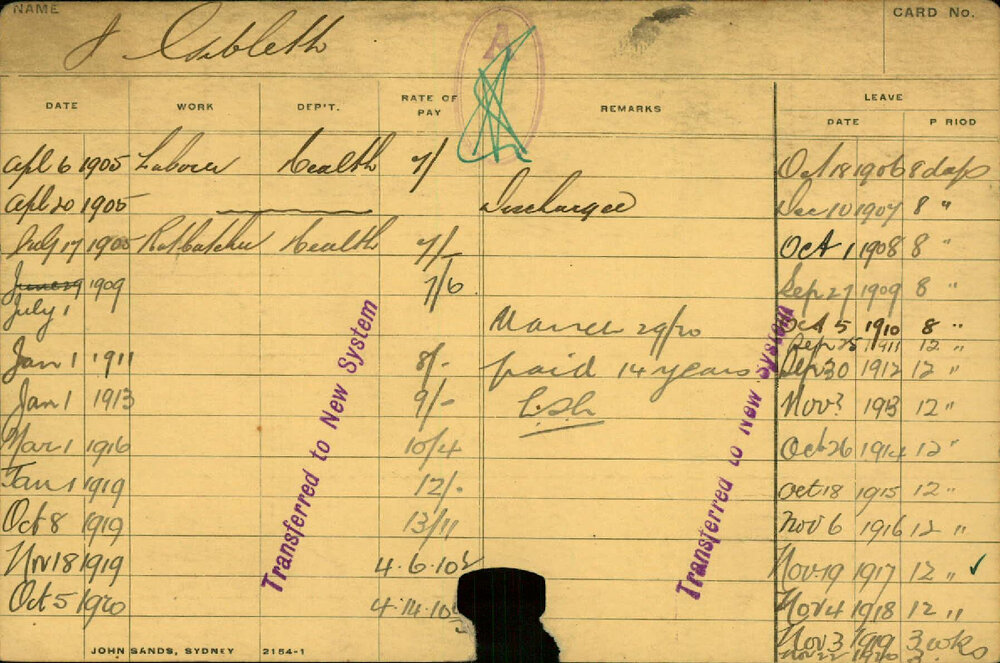 NAME CARD No.
J Cubleth
A
DATE WORK DEP'T. RATE OF PAY REMARKS LEAVE
DATE P RIOD
Apl 6 1905 Labourer Health 7/ Oct 18 1906 8 days
Apl 20 1905 Discharged Dec 10 1907 8 "
July 17 1905 Ratcatcher Health 7/- Oct 1 1908 8 "
June 29 1909 7/6 Sep 27 1909 8 "
July 1
March 29/20 Oct 5 1910 8 "
Sep 25 1911 12 "
Jan 1 1911 8/- paid 14 years Sep 30 1912 12 "
Jan 1 1913 9/- Nov 3 1913 12 "
Mar 1 1916 10/4 Oct 26 1914 12 "
Jan 1 1919 12/- Oct 18 1915 12 "
Oct 8 1919 13/11 Nov 6 1916 12 "
Nov 18 1919 4.6.10½ Nov 19 1917 12 " ✓
Oct 5 1920 4.14.10½ Nov 4 1918 12 "
Nov 3 1919 3 wks
Nov 22 1920
Transferred to New System
Transferred to New System
JOHN SANDS, SYDNEY 2154-1